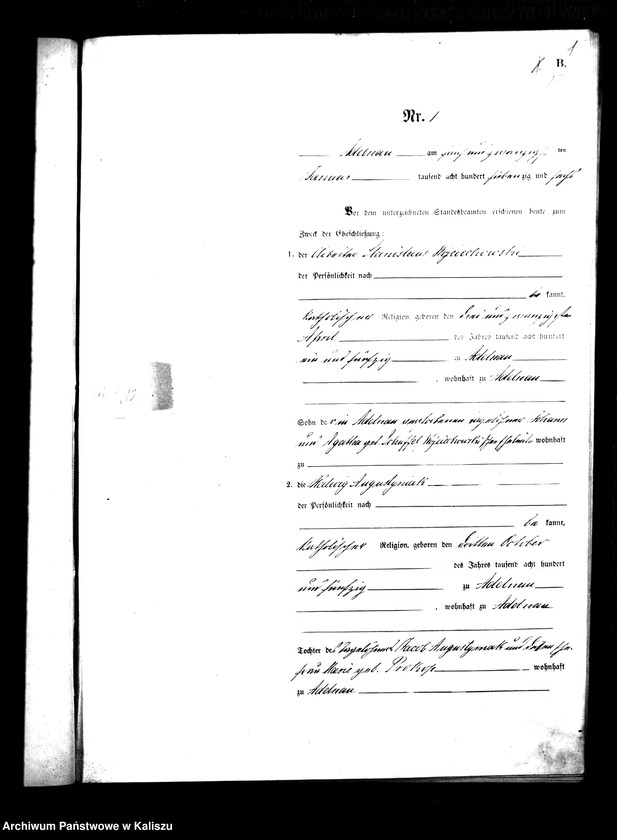 1
B.
Nr. 1
Adelnau am fünf und zwanzigsten
Januar tausend acht hundert siebenzig und sechs
Vor dem unterzeichneten Standesbeamten erschienen heute zum
Zweck der Eheschließung:
1. der Arbeiter Stanislaus Wojciechowski
der Persönlichkeit nach
be kannt,
katholischer Religion, geboren den drei und zwanzigsten
April des Jahres tausend acht hundert
ein und fünfzig zu Adelnau
, wohnhaft zu Adelnau
Sohn der in Adelnau verstorbenen Johann
und Agatha geb. Wojciechowski wohnhaft
zu
2. die Hedwig Augustyniak
der Persönlichkeit nach
be kannt,
katholischer Religion, geboren den dritten October
des Jahres tausend acht hundert
und fünfzig zu Adelnau
, wohnhaft zu Adelnau
Tochter des Jacob Augustyniak und dessen Ehe-
frau Marie geb. Prokop wohnhaft
zu Adelnau
Archiwum Państwowe w Kaliszu